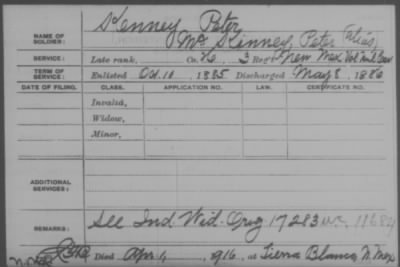 Kenney, Peter
NAME OF SOLDIER: McKinney, Peter (alias)
SERVICE: Late rank, Co. H, 3 Reg't New Mex Vol Mil Cav
TERM OF SERVICE: Enlisted Oct. 10, 1885 Discharged May 8, 1886
DATE OF FILING. CLASS. APPLICATION NO. LAW. CERTIFICATE NO.
Invalid,
Widow,
Minor,
ADDITIONAL SERVICES:
REMARKS: See Ind. Wid. Orig 17283
Died Apr. 1, 1916, at Tierra Blanca, N. Mex